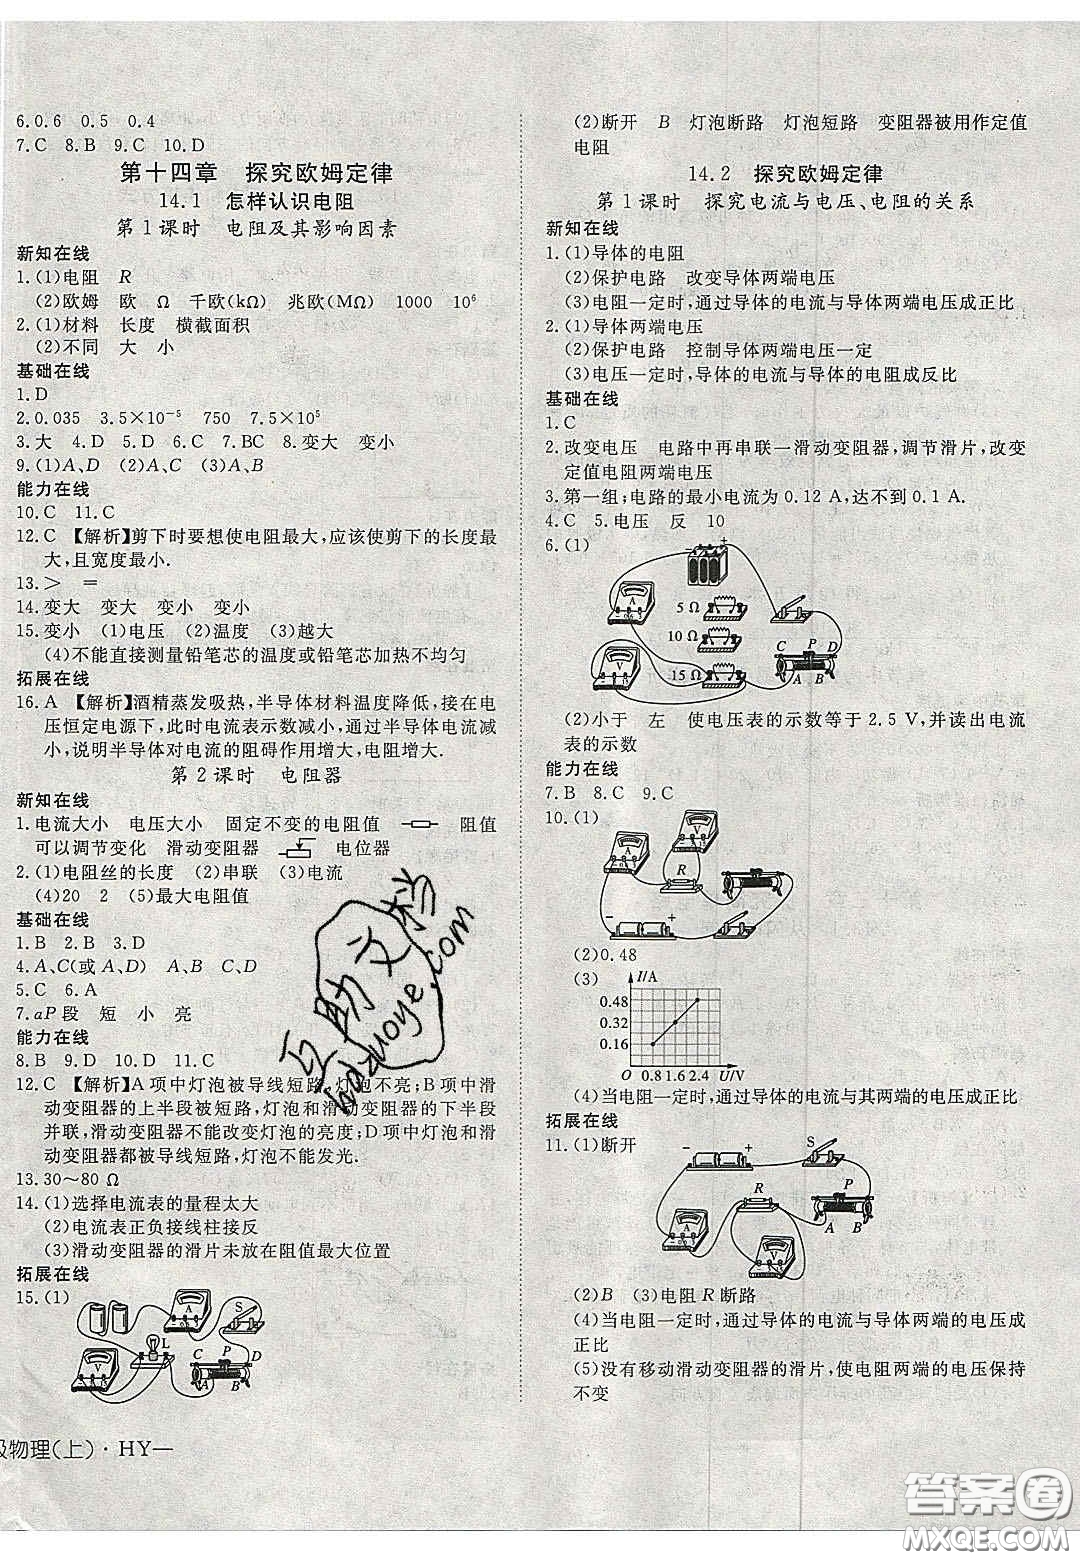 6.0.6 0.5 0.4
7.C 8.B 9.C 10.D
第十四章 探究欧姆定律
14.1 怎样认识电阻
第1课时 电阻及其影响因素
新知在线
1.(1)电阻 R
(2)欧姆 欧 Ω 千欧(kΩ) 兆欧(MΩ) 1000 10⁶
2.(1)材料 长度 横截面积
(2)不同 大 小
基础在线
1.D
2.0.035 3.5×10⁻⁵ 750 7.5×10⁵
3.大 4.D 5.D 6.C 7.BC 8.变大 变小
9.(1)A、D (2)A、C (3)A、B
能力在线
10.C 11.C
12.C 【解析】剪下时要想使电阻最大,应该使剪下的长度最
大,且宽度最小.
13.> =
14.变大 变大 变小 变小
15.变小 (1)电压 (2)温度 (3)越大
(4)不能直接测量铅笔芯的温度或铅笔芯加热不均匀
拓展在线
16.A 【解析】酒精蒸发吸热,半导体材料温度降低,接在电
压恒定电源下,此时电流表示数减小,通过半导体电流减
小,说明半导体对电流的阻碍作用增大,电阻增大.
第2课时 电阻器
新知在线
1.电流大小 电压大小 固定不变的电阻值 阻值
可以调节变化 滑动变阻器 电位器
2.(1)电阻丝的长度 (2)串联 (3)电流
(4)20 2 (5)最大电阻值
基础在线
1.B 2.B 3.D
4.A、C(或A、D) A、B C、D
5.C 6.A
7.aP段 短 小 亮
能力在线
8.B 9.D 10.D 11.C
12.C 【解析】A项中灯泡被导线短路,灯泡不亮;B项中滑
动变阻器的上半段被短路,灯泡和滑动变阻器的下半段
并联,滑动变阻器不能改变灯泡的亮度;D项中灯泡和滑
动变阻器都被导线短路,灯泡不能发光.
13.30~80 Ω
14.(1)选择电流表的量程太大
(2)电流表正负接线柱接反
(3)滑动变阻器的滑片未放在阻值最大位置
拓展在线
15.(1)
A S
L
V C P D
A B
级物理(上)·HY—
(2)断开 B 灯泡断路 灯泡短路 变阻器被用作定值
电阻
14.2 探究欧姆定律
第1课时 探究电流与电压、电阻的关系
新知在线
1.(1)导体的电阻
(2)保护电路 改变导体两端电压
(3)电阻一定时,通过导体的电流与导体两端电压成正比
2.(1)导体两端电压
(2)保护电路 控制导体两端电压一定
(3)电压一定时,导体的电流与导体的电阻成反比
基础在线
1.C
2.改变电压 电路中再串联一滑动变阻器,调节滑片,改变
定值电阻两端电压
3.第一组;电路的最小电流为0.12 A,达不到0.1 A.
4.C 5.电压 反 10
6.(1)
- +
A
5 Ω
10 Ω
V 15 Ω
C P D
A B
(2)小于 左 使电压表的示数等于2.5 V,并读出电流
表的示数
能力在线
7.B 8.C 9.C
10.(1)
A V
R
- +
(2)0.48
(3)
I/A
0.48
0.32
0.16
O 0.8 1.6 2.4 U/V
(4)当电阻一定时,通过导体的电流与其两端的电压成正比
拓展在线
11.(1)断开
- + S
R P
A
A B
V
(2)B (3)电阻R断路
(4)当电阻一定时,通过导体的电流与导体两端的电压成
正比
(5)没有移动滑动变阻器的滑片,使电阻两端的电压保持
不变
答案圈
MXQE.COM